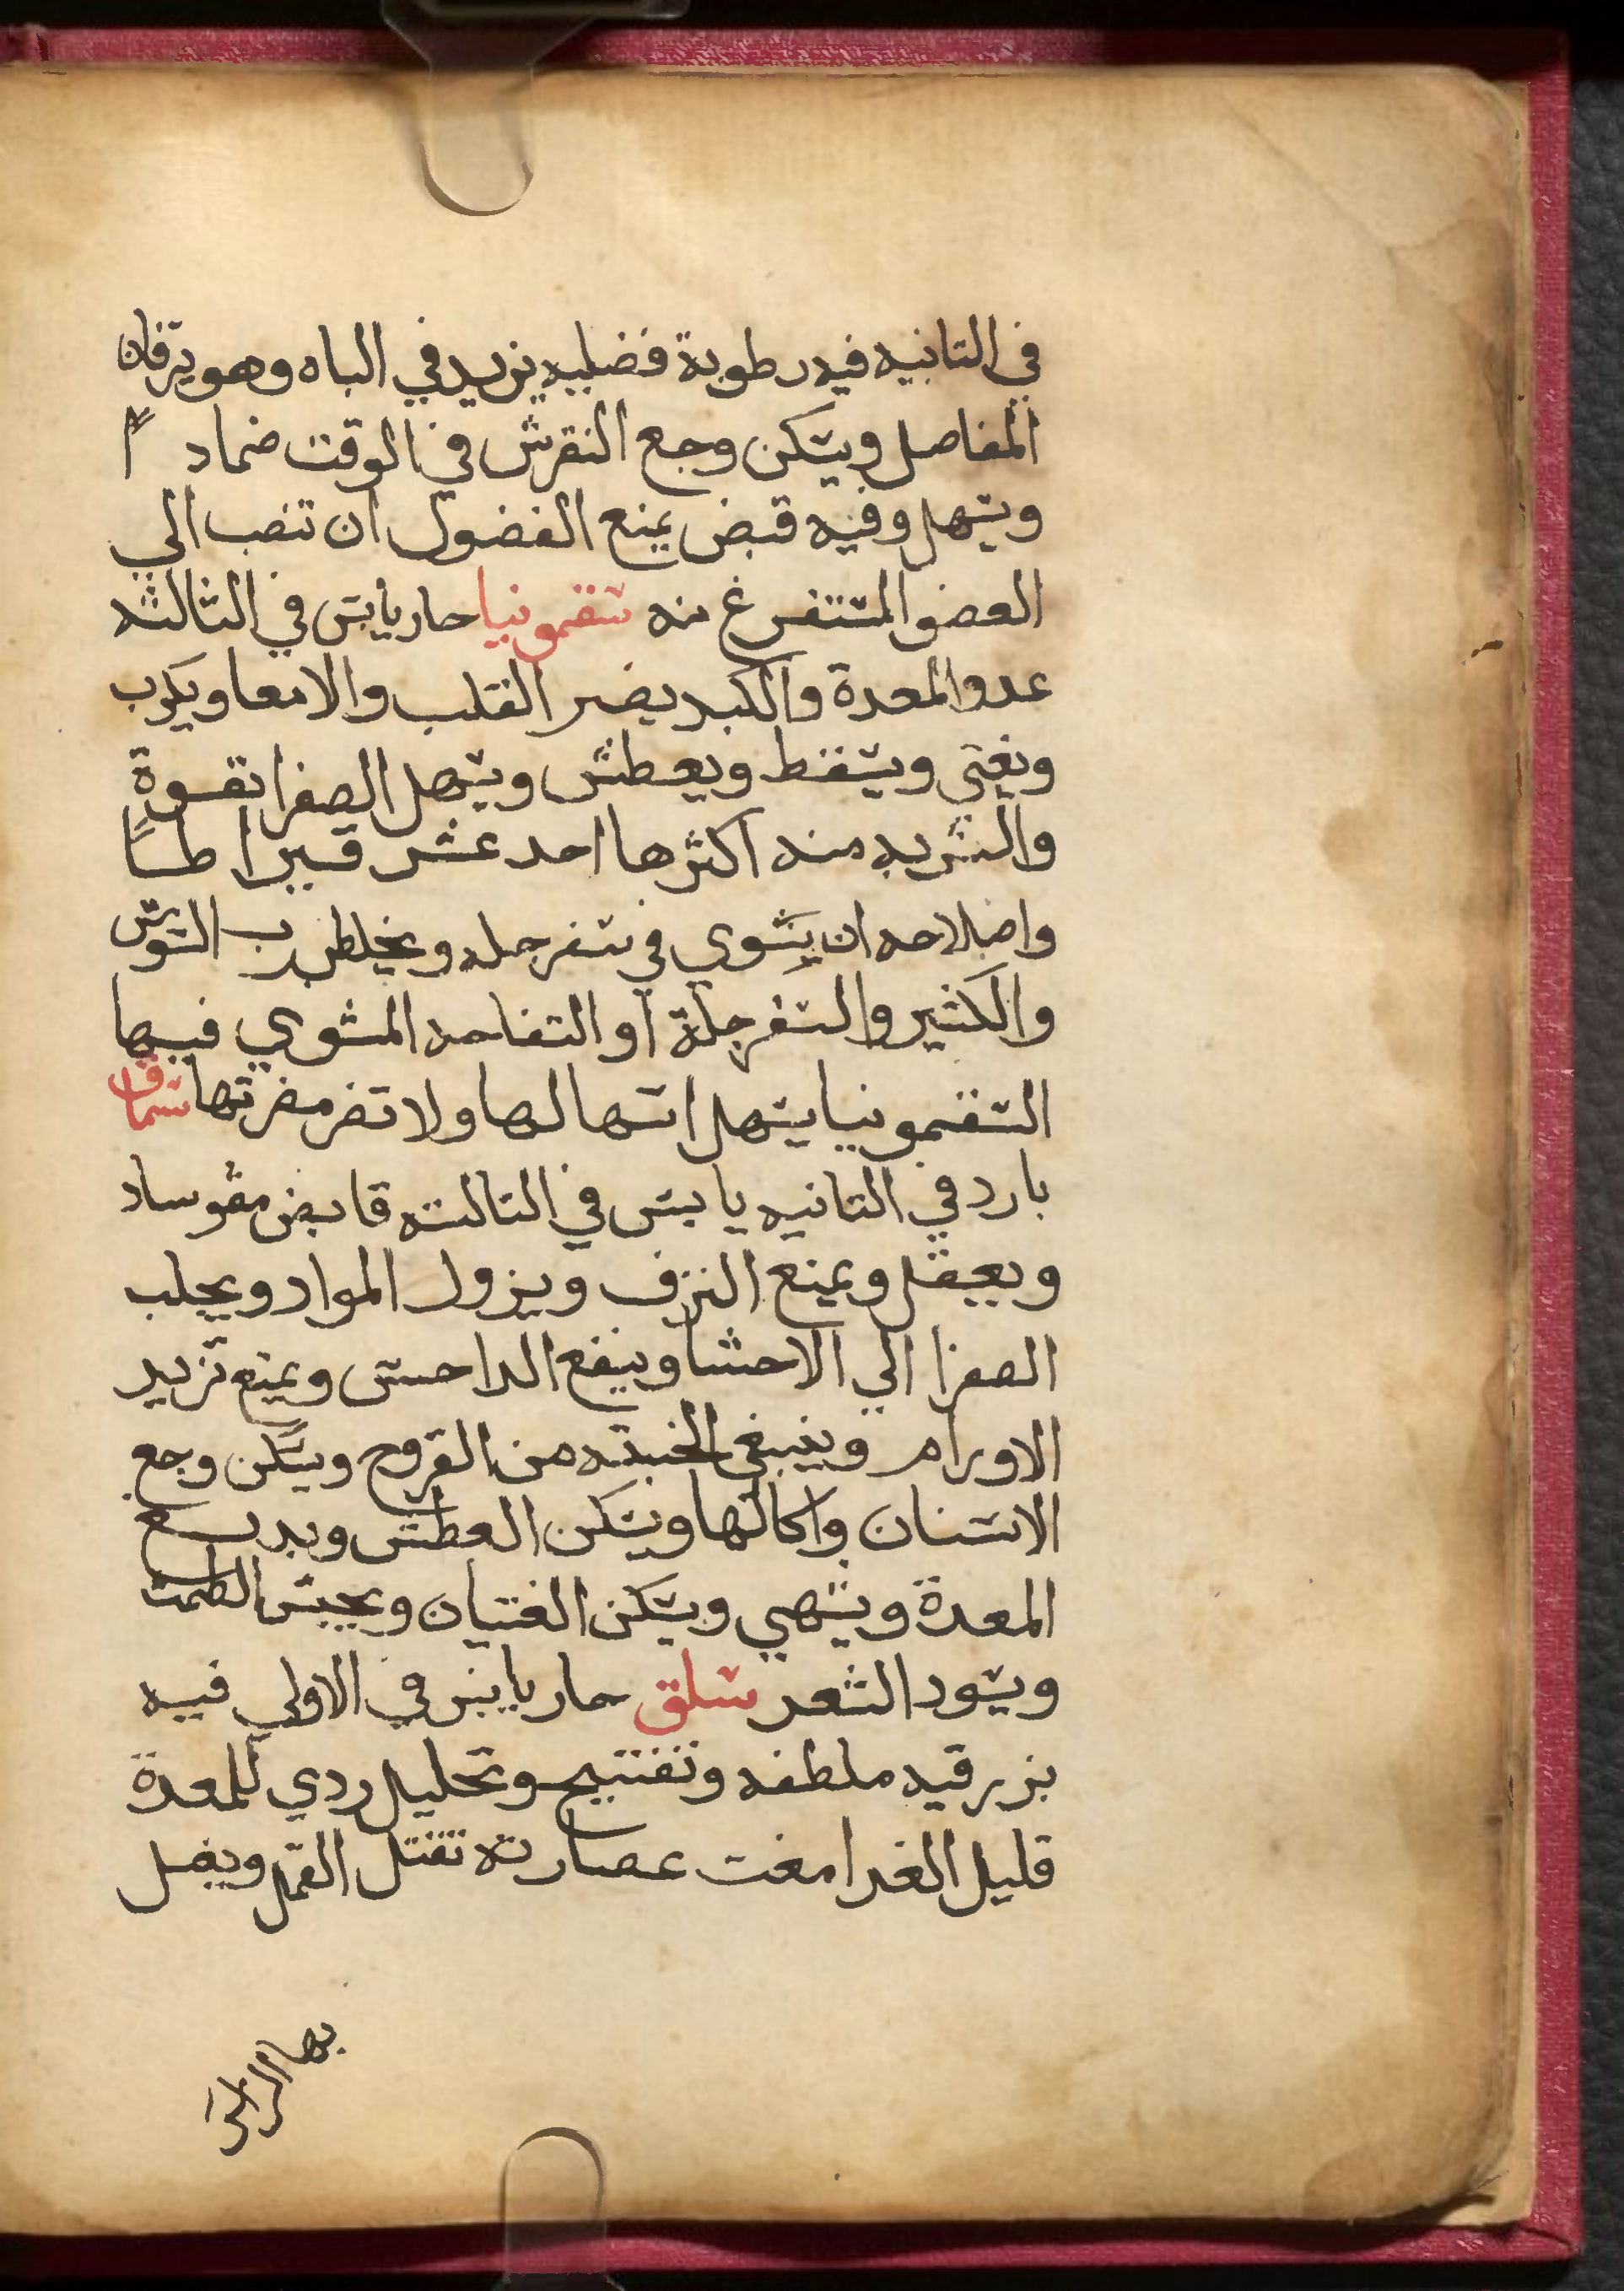 في التانيه فيه رطوبة فضليه يزيد في الباه وهو ترقاق
المفاصل ويسكن وجع النقرس في الوقت ضمادا
ويسهل وفيه قبض يمنع الفضول ان تنصب الي
العضو المستفرغ منه سقمونيا حار يابس في الثالثه
عدو المعدة والكبد يضر القلب والامعا ويكرب
ويغثي ويسقط ويعطش ويسهل الصفرا بقوة
والشربه منه اكثرها احد عشر قيراطا
واصلاحه ان يشوي في سفرجله ويخلط برب السوس
والكثير والسفرجلة او التفاحه المشوي فيها
السقمونيا يسهل اسهالها ولا تضر مضرتها سماق
بارد في التانيه يابس في التالته قابض مقو ساد
ويعقل ويمنع النزف ويزول المواد ويجلب
الصفرا الي الاحشا وينفع الداحس ويمنع تزيد
الاورام وينبغي الخبيثه من القروح ويسكن وجع
الاسنان واكالها ويسكن العطش ويدبغ
المعدة ويشهي ويسكن الغثيان ويحبس الطمث
ويسود الشعر سلق حار يابس في الاولي فيه
بزرقيه ملطفه وتفتيح وتحليل ردي للمعدة
قليل الغدا مغث عصارته تقتل القمل ويغسل
بها الراس